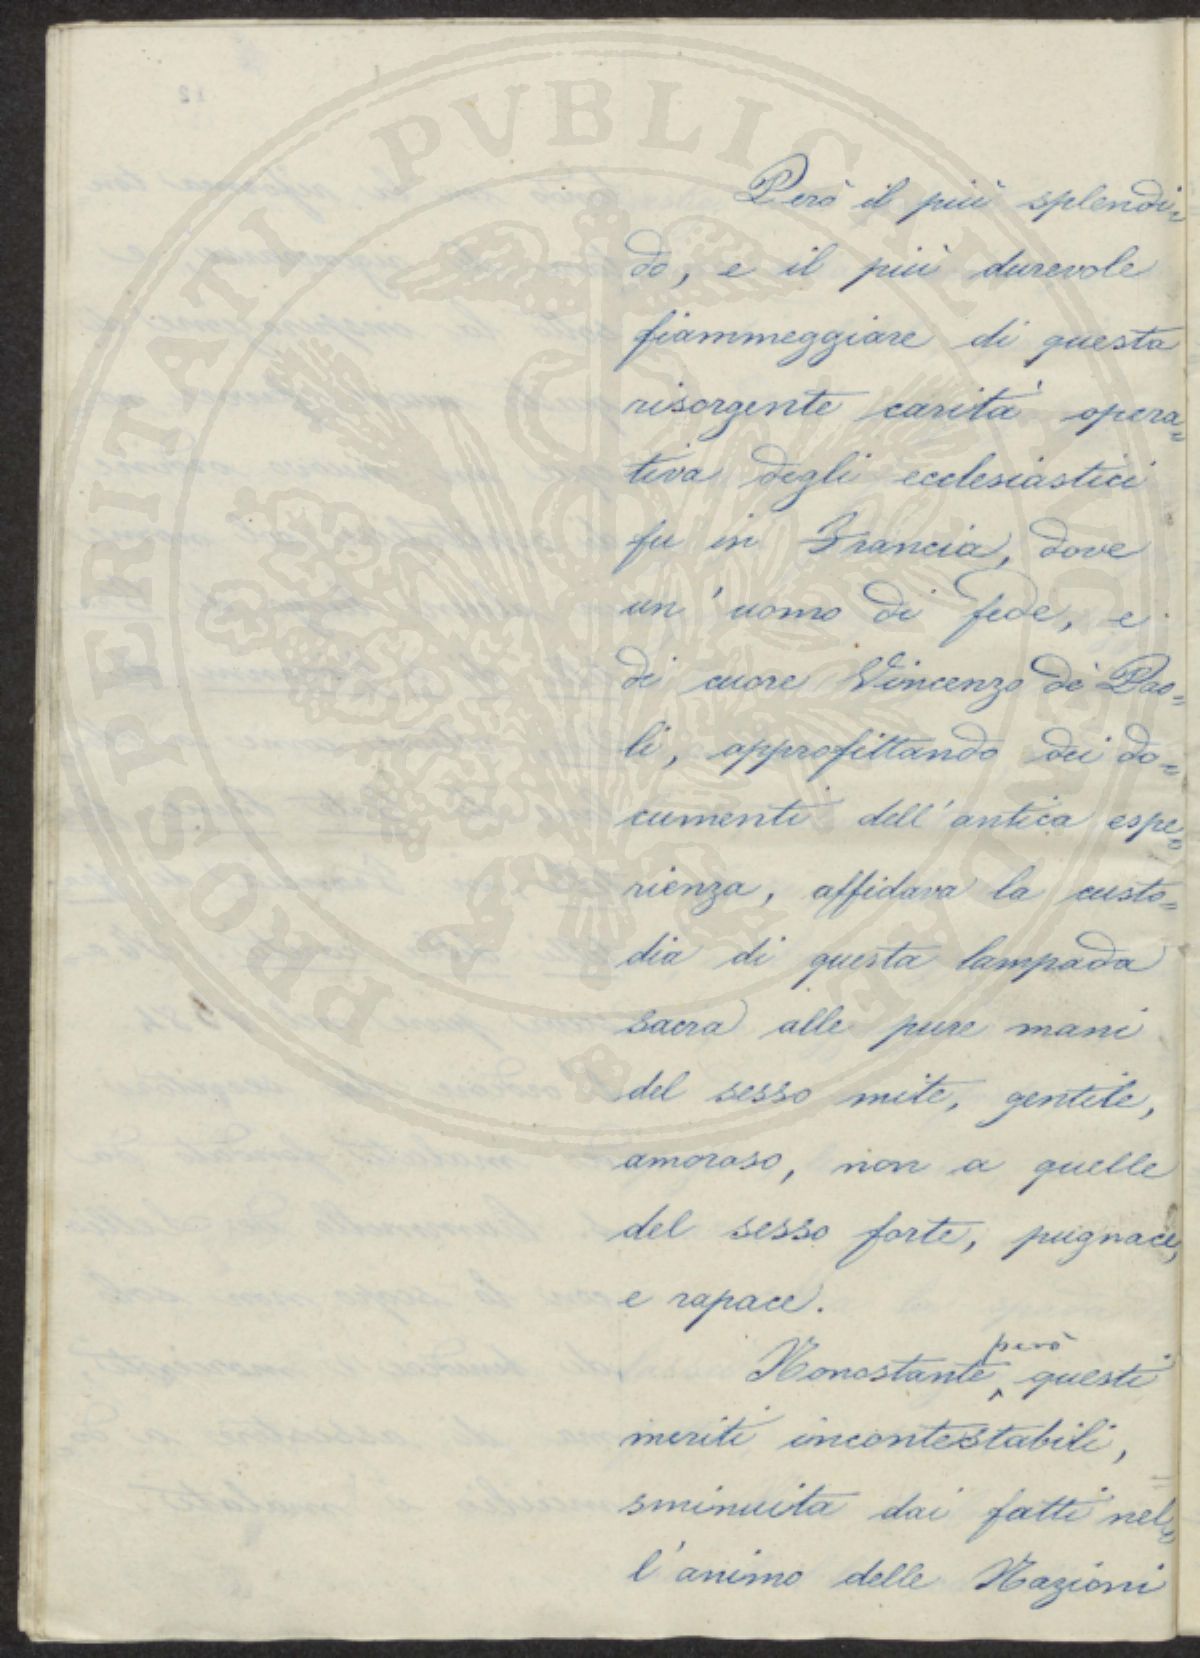 Però il più splendi=
do, e il più durevole
fiammeggiare di questa
risorgente carità opera=
tiva degli ecclesiastici
fu in Francia, dove
un' uomo di fede, e
di cuore Vincenzo dè Pao=
li, approfittando dei do=
cumenti dell'antica espe=
rienza, affidava la custo=
dia di questa lampada
sacra alle pure mani
del sesso mite, gentile,
amoroso, non a quelle
del sesso forte, pugnace,
e rapace.
Nonostante però questi
meriti incontestabili,
sminuita dai fatti nel=
l'animo delle Nazioni
PROSPERITATI PVBLIC